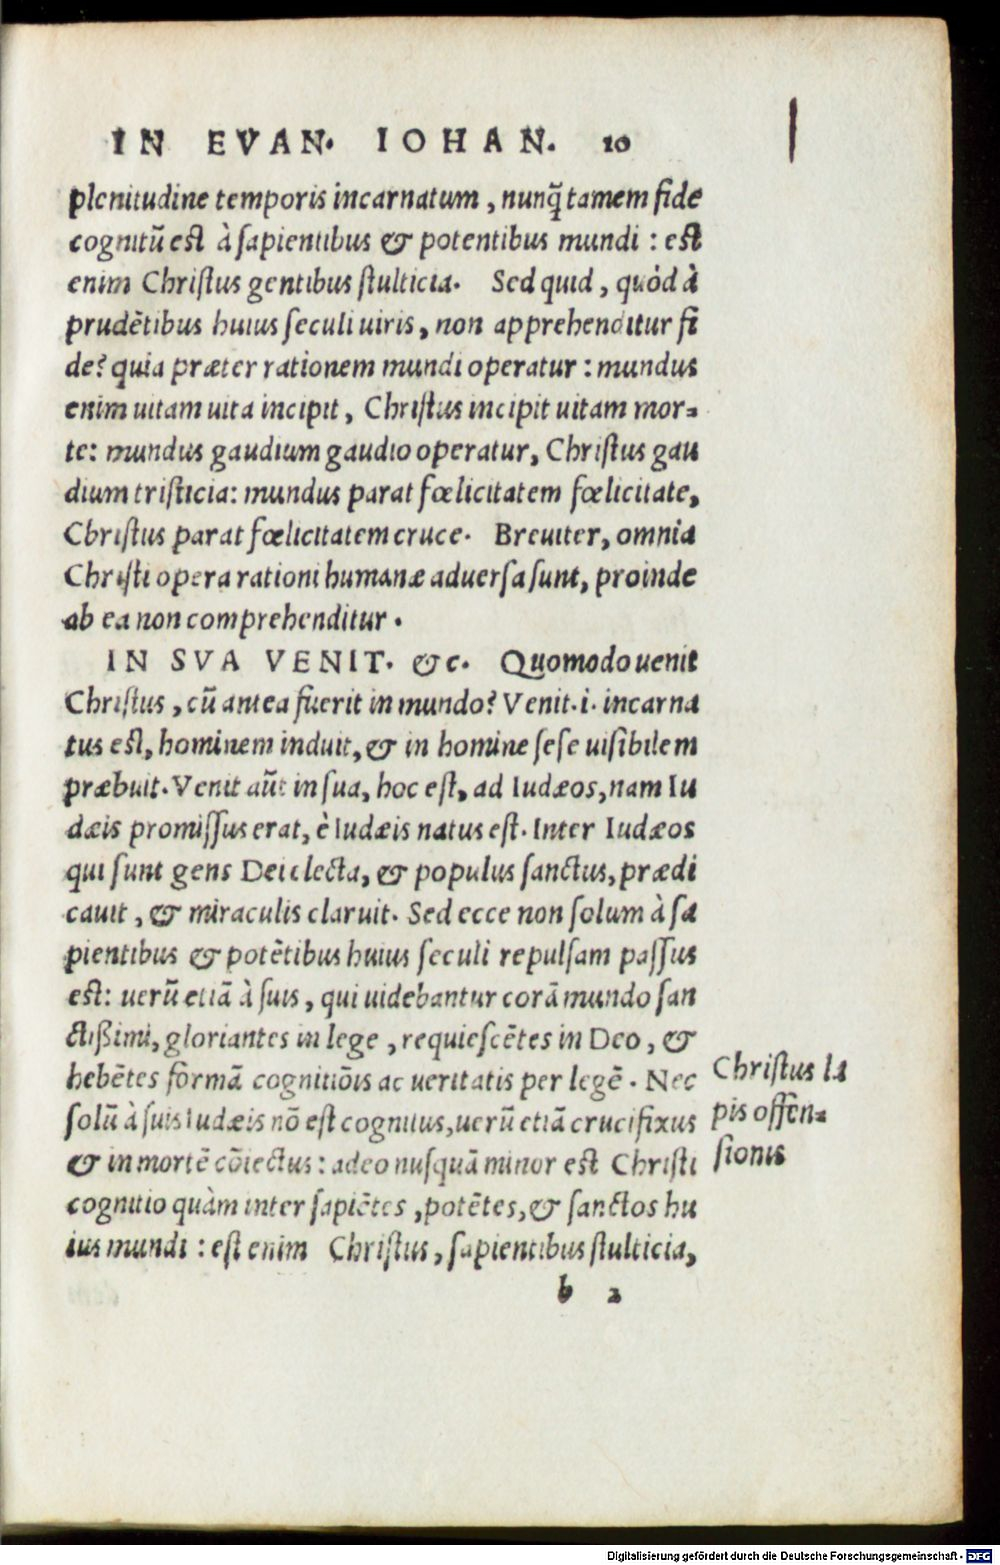 IN EVAN. IOHAN. 10
plenitudine temporis incarnatum, nunq̃ tamem fide
cognitū est à sapientibus & potentibus mundi : est
enim Christus gentibus stulticia. Sed quid, quòd à
prudētibus huius seculi uiris, non apprehenditur fi
de? quia præter rationem mundi operatur : mundus
enim uitam uita incipit, Christus incipit uitam mor=
te: mundus gaudium gaudio operatur, Christus gau
dium tristicia: mundus parat fœlicitatem fœlicitate,
Christus parat fœlicitatem cruce. Breuiter, omnia
Christi opera rationi humanæ aduersa sunt, proinde
ab ea non comprehenditur.
IN SVA VENIT. &c. Quomodo uenit
Christus, cū antea fuerit in mundo? Venit.i. incarna
tus est, hominem induit, & in homine sese uisibilem
præbuit. Venit aūt in sua, hoc est, ad Iudæos, nam Iu
dæis promissus erat, è Iudæis natus est. Inter Iudæos
qui sunt gens Dei electa, & populus sanctus, prædi
cauit, & miraculis claruit. Sed ecce non solum à sa
pientibus & potētibus huius seculi repulsam passus
est: uerū etiā à suis, qui uidebantur corā mundo san
ctißimi, gloriantes in lege, requiescētes in Deo, &
hebētes formā cognitiōis ac ueritatis per legē. Nec
solū à suis Iudæis nō est cognitus, uerū etiā crucifixus
& in mortē cōiectus : adeo nusquā minor est Christi
cognitio quàm inter sapiētes, potētes, & sanctos hu
ius mundi : est enim Christus, sapientibus stulticia,
b 2
Christus la
pis offen=
sionis
Digitalisierung gefördert durch die Deutsche Forschungsgemeinschaft - DFG